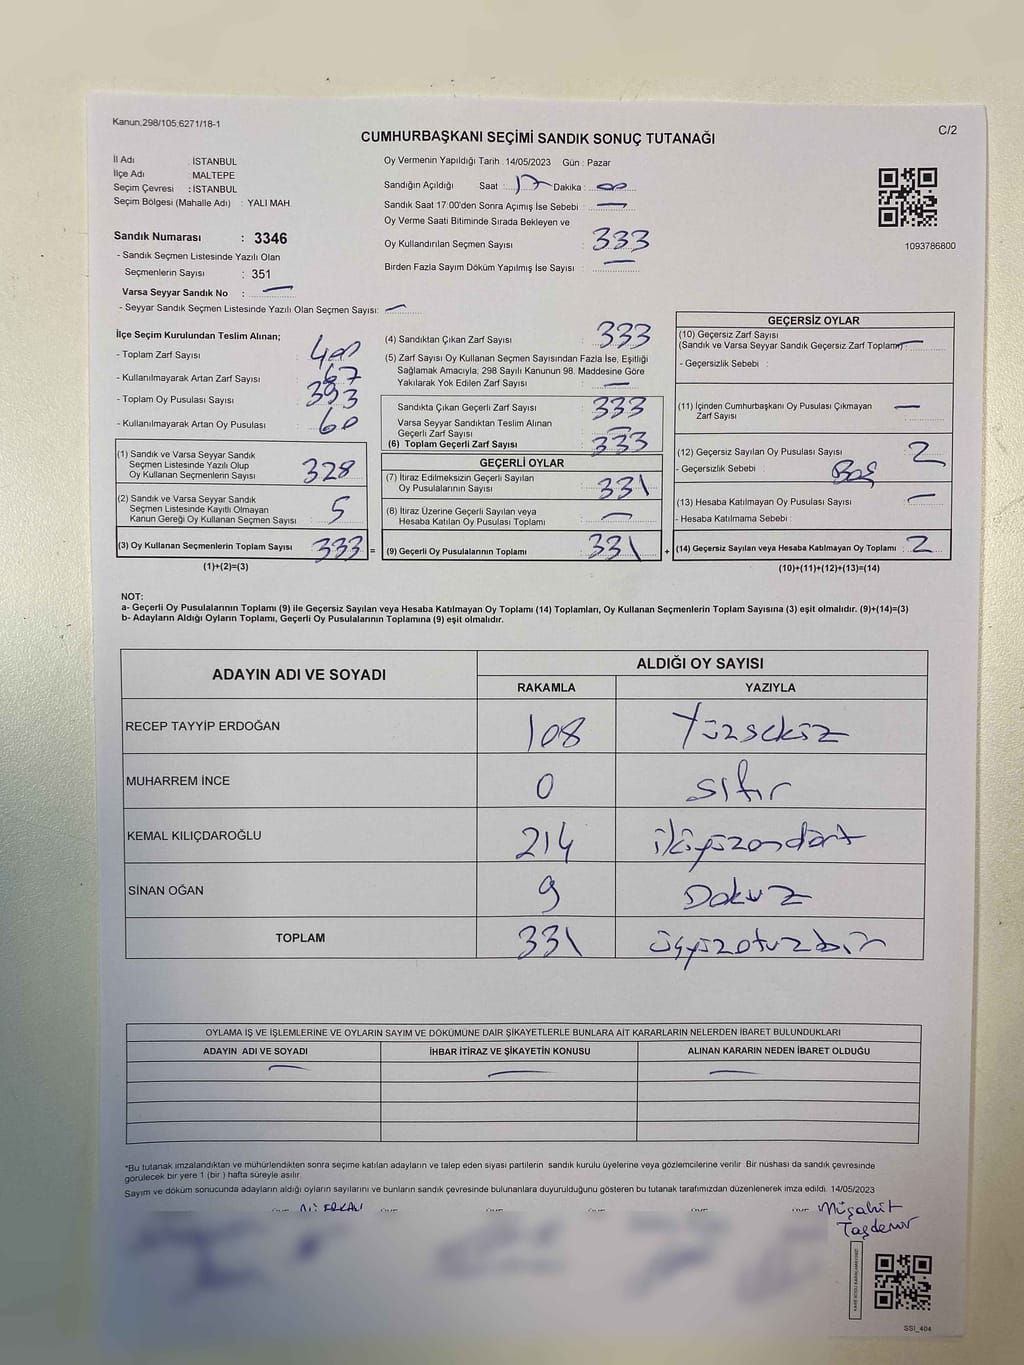 Kanun.298/105.6271/18-1
C/2
CUMHURBAŞKANI SEÇİMİ SANDIK SONUÇ TUTANAĞI
İl Adı : İSTANBUL
İlçe Adı : MALTEPE
Seçim Çevresi : İSTANBUL
Seçim Bölgesi (Mahalle Adı) : YALI MAH.
Sandık Numarası : 3346
- Sandık Seçmen Listesinde Yazılı Olan
Seçmenlerin Sayısı : 351
Varsa Seyyar Sandık No : —
- Seyyar Sandık Seçmen Listesinde Yazılı Olan Seçmen Sayısı: —
Oy Vermenin Yapıldığı Tarih : 14/05/2023 Gün : Pazar
Sandığın Açıldığı Saat : 17 Dakika : 00
Sandık Saat 17:00'den Sonra Açımış İse Sebebi : —
Oy Verme Saati Bitiminde Sırada Bekleyen ve
Oy Kullandırılan Seçmen Sayısı : 333
Birden Fazla Sayım Döküm Yapılmış İse Sayısı : —
1093786800
İlçe Seçim Kurulundan Teslim Alınan;
- Toplam Zarf Sayısı : 400
- Kullanılmayarak Artan Zarf Sayısı : 67
- Toplam Oy Pusulası Sayısı : 393
- Kullanılmayarak Artan Oy Pusulası : 60
(1) Sandık ve Varsa Seyyar Sandık
Seçmen Listesinde Yazılı Olup
Oy Kullanan Seçmenlerin Sayısı : 328
(2) Sandık ve Varsa Seyyar Sandık
Seçmen Listesinde Kayıtlı Olmayan
Kanun Gereği Oy Kullanan Seçmen Sayısı : 5
(3) Oy Kullanan Seçmenlerin Toplam Sayısı : 333 =
(1)+(2)=(3)
(4) Sandıktan Çıkan Zarf Sayısı : 333
(5) Zarf Sayısı Oy Kullanan Seçmen Sayısından Fazla İse, Eşitliği
Sağlamak Amacıyla; 298 Sayılı Kanunun 98. Maddesine Göre
Yakılarak Yok Edilen Zarf Sayısı : —
Sandıkta Çıkan Geçerli Zarf Sayısı : 333
Varsa Seyyar Sandıktan Teslim Alınan
Geçerli Zarf Sayısı : —
(6) Toplam Geçerli Zarf Sayısı : 333
GEÇERLİ OYLAR
(7) İtiraz Edilmeksizin Geçerli Sayılan
Oy Pusulalarının Sayısı : 331
(8) İtiraz Üzerine Geçerli Sayılan veya
Hesaba Katılan Oy Pusulası Toplamı : —
(9) Geçerli Oy Pusulalarının Toplamı : 331 +
GEÇERSİZ OYLAR
(10) Geçersiz Zarf Sayısı
(Sandık ve Varsa Seyyar Sandık Geçersiz Zarf Toplamı) —
- Geçersizlik Sebebi :
(11) İçinden Cumhurbaşkanı Oy Pusulası Çıkmayan
Zarf Sayısı —
(12) Geçersiz Sayılan Oy Pusulası Sayısı : 2
- Geçersizlik Sebebi : Boş
(13) Hesaba Katılmayan Oy Pusulası Sayısı : —
- Hesaba Katılmama Sebebi :
(14) Geçersiz Sayılan veya Hesaba Katılmayan Oy Toplamı : 2
(10)+(11)+(12)+(13)=(14)
NOT:
a- Geçerli Oy Pusulalarının Toplamı (9) ile Geçersiz Sayılan veya Hesaba Katılmayan Oy Toplamı (14) Toplamları, Oy Kullanan Seçmenlerin Toplam Sayısına (3) eşit olmalıdır. (9)+(14)=(3)
b- Adayların Aldığı Oyların Toplamı, Geçerli Oy Pusulalarının Toplamına (9) eşit olmalıdır.
ADAYIN ADI VE SOYADI ALDIĞI OY SAYISI
RAKAMLA YAZIYLA
RECEP TAYYİP ERDOĞAN 108 Yüzsekiz
MUHARREM İNCE 0 sıfır
KEMAL KILIÇDAROĞLU 214 ikiyüzondört
SİNAN OĞAN 9 Dokuz
TOPLAM 331 üçyüzotuzbir
OYLAMA İŞ VE İŞLEMLERİNE VE OYLARIN SAYIM VE DÖKÜMÜNE DAİR ŞİKAYETLERLE BUNLARA AİT KARARLARIN NELERDEN İBARET BULUNDUKLARI
ADAYIN ADI VE SOYADI İHBAR İTİRAZ VE ŞİKAYETİN KONUSU ALINAN KARARIN NEDEN İBARET OLDUĞU
— — —
*Bu tutanak imzalandıktan ve mühürlendikten sonra seçime katılan adayların ve talep eden siyasi partilerin sandık kurulu üyelerine veya gözlemcilerine verilir. Bir nüshası da sandık çevresinde
görülecek bir yere 1 (bir) hafta süreyle asılır.
Sayım ve döküm sonucunda adayların aldığı oyların sayılarını ve bunların sandık çevresinde bulunanlara duyurulduğunu gösteren bu tutanak tarafımızdan düzenlenerek imza edildi. 14/05/2023
Müşahit
Taşdemir
SSI_404